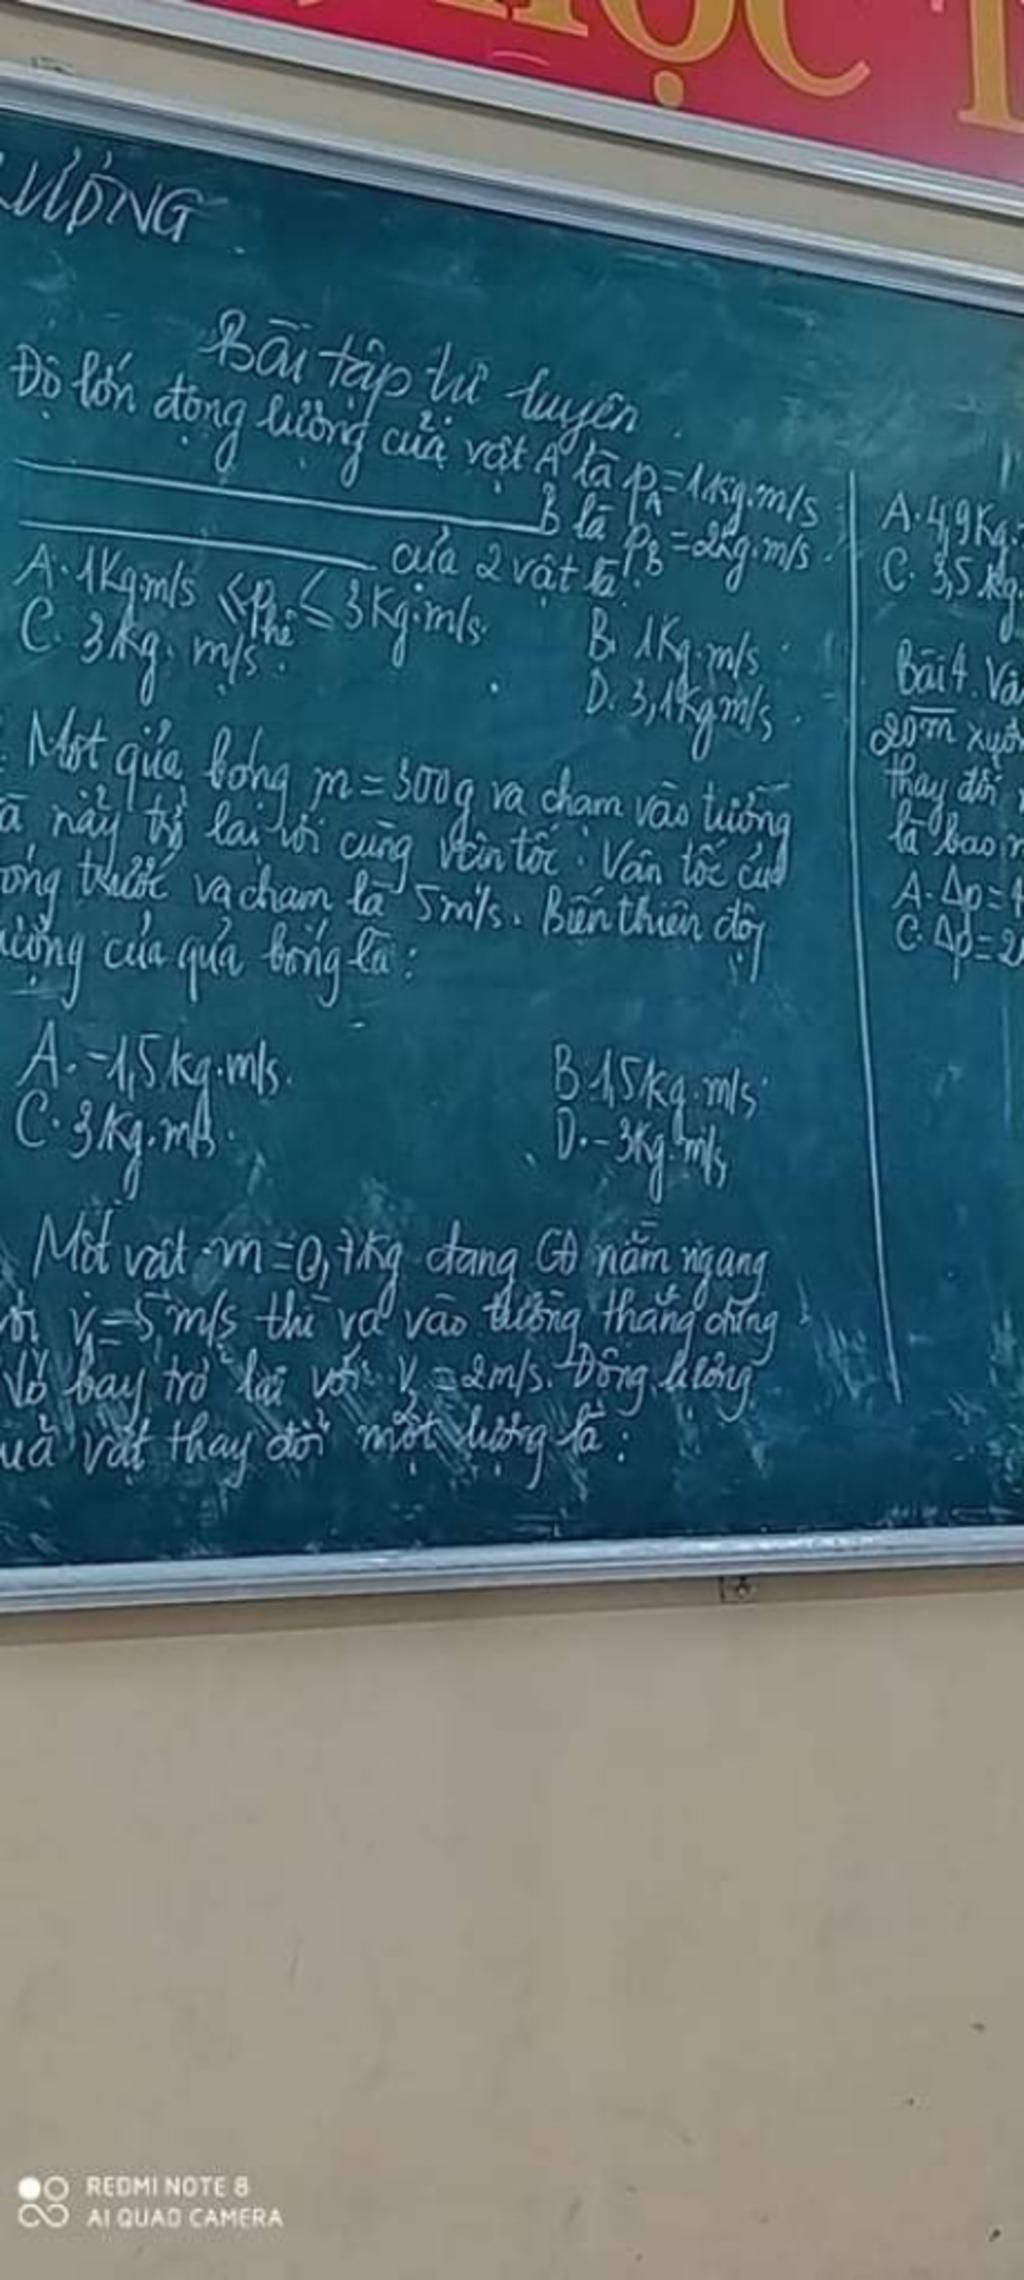 HỌC T
LƯỢNG
Bài tập tự luyện.
Độ lớn động lượng của vật A là pA = 1kg.m/s
B là pB = 2kg.m/s
của 2 vật là:
A. 1Kg.m/s ≤ phệ ≤ 3Kg.m/s.
B. 1Kg.m/s.
C. 3kg. m/s.
D. 3,1kgm/s.
Một qủa bóng m = 300g va chạm vào tường
à nảy trở lại với cùng vận tốc. Vận tốc của
óng trước va chạm là 5m/s. Biến thiên động
ượng của qủa bóng là:
A. -1,5kg.m/s.
B. 1,5kg.m/s.
C. 3kg.m/s.
D. -3kg.m/s
Một vật m = 0,7kg đang CĐ nằm ngang
với v1 = 5m/s thì va vào tường thẳng đứng
Nó bay trở lại với v2 = 2m/s. Động lượng
ủa vật thay đổi một lượng là:
A. 4,9Kg.
C. 3,5 kg.
Bài 4. Vậ
20m xuốn
thay đổi
là bao n
A. Δp = 4
C. Δp = 2
REDMI NOTE 8
AI QUAD CAMERA